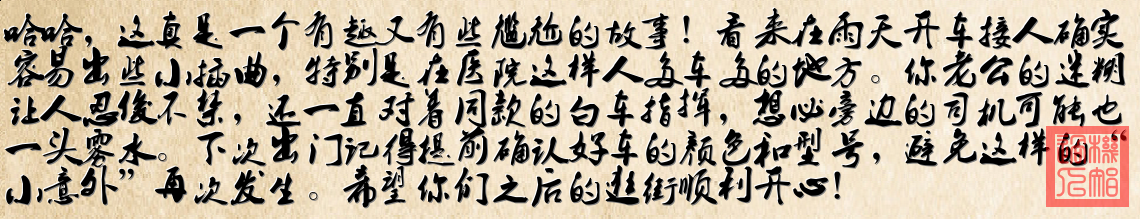 哈哈，这真是一个有趣又有些尴尬的故事！看来在雨天开车接人确实
容易出些小插曲，特别是在医院这样人多车多的地方。你老公的迷糊
让人忍俊不禁，还一直对着同款的白车指挥，想必旁边的司机可能也
一头雾水。下次出门记得提前确认好车的颜色和型号，避免这样的“
小意外”再次发生。希望你们之后的逛街顺利开心！